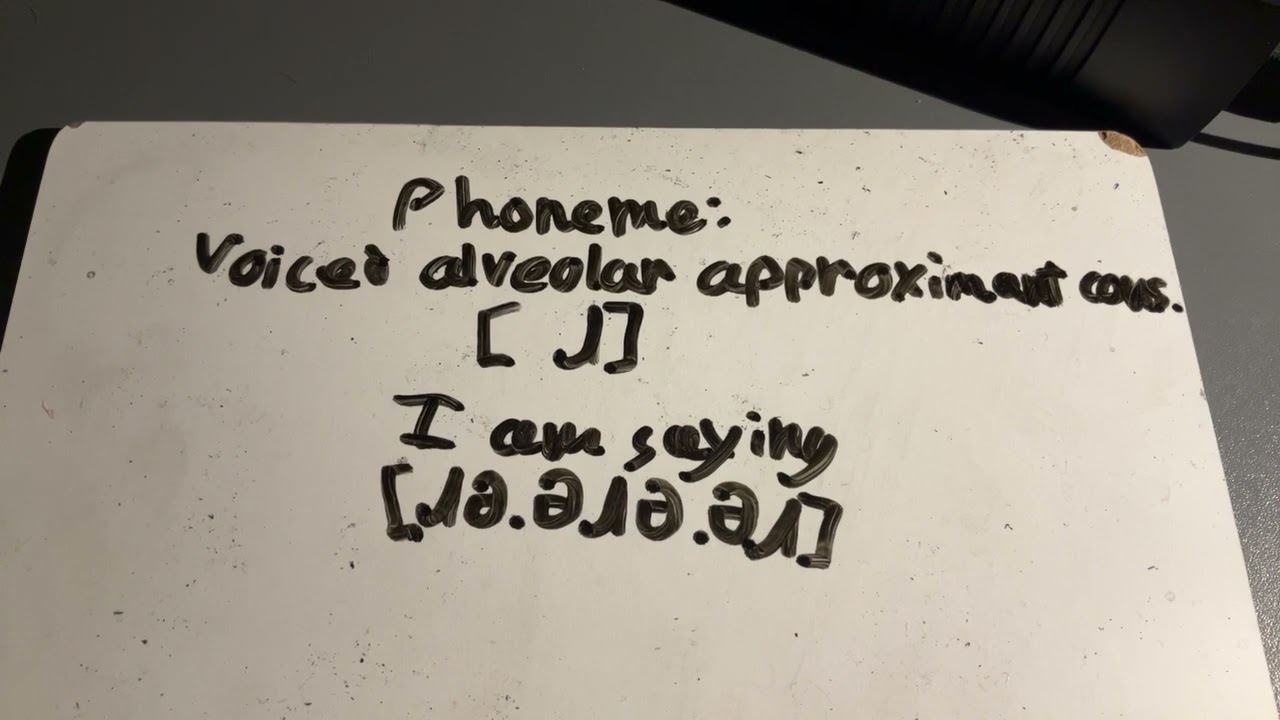 Phoneme:
Voiced alveolar approximant cons.
[ɹ]
I am saying
[ɹə.əɹə.əɹ]